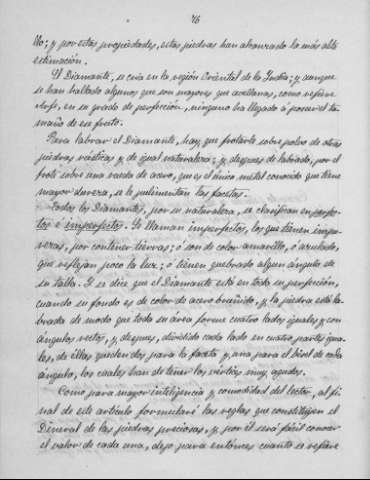 76
llo; y por estas propiedades, estas piedras han alcanzado la más alta
estimación.
El Diamante, se cria en la región Oriental de la India; y aunque
se han hallado algunos que son mayores que avellanas, como refiere
en su grado de perfección, ninguno ha llegado á poseer el ta-
maño de ese fruto.
Para labrar el Diamante, hay que frotarle sobre polvo de otras
piedras rústicas y de igual naturaleza; y despues de labrado, por el
frote sobre una rueda de acero, que es el único metal conocido que tiene
mayor dureza, se le pulimentan las facetas.
Todos los Diamantes, por su naturaleza, se clasifican en perfec-
tos é imperfectos. Se llaman imperfectos, los que tienen impu-
rezas, por contener tierras; ó son de color amarillo, ó azulado,
que reflejan poco la luz; ó tienen quebrado algun ángulo de
su talla. Y se dice que el Diamante está en toda su perfección,
cuando su fondo es de color de acero bruñido, y la piedra está la-
brada de modo que toda su área forme cuatro lados iguales y con
ángulos rectos, y despues, dividido cada lado en cuatro partes igua-
les, de ellas queden dos para la faceta y una para el bisel de cada
ángulo, los cuales han de tener los vértices muy agudos.
Como para mayor inteligencia y comodidad del lector, al fi-
nal de este artículo formularé las reglas que constituyen el
General de las piedras preciosas, y por él será fácil conocer
el valor de cada una, dejo para entónces cuanto se refiere